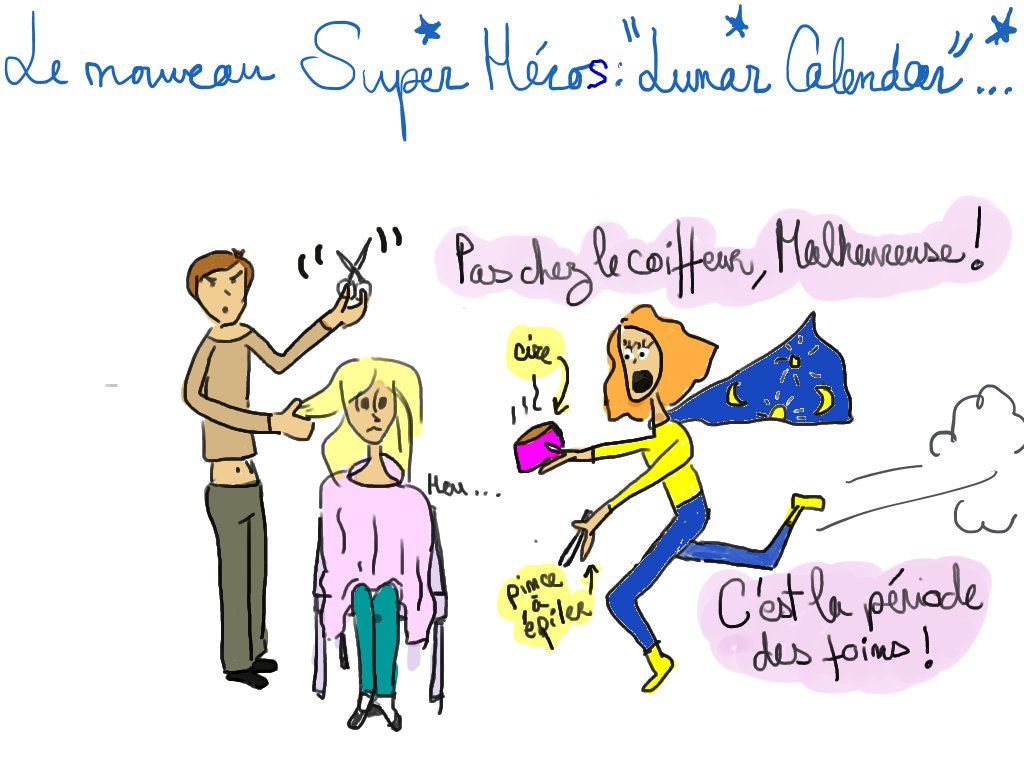 Le nouveau Super Héros : "Lunar Calendar"...
Pas chez le coiffeur, Malheureuse !
cire
pince
à
épiler
C'est la période
des foins !